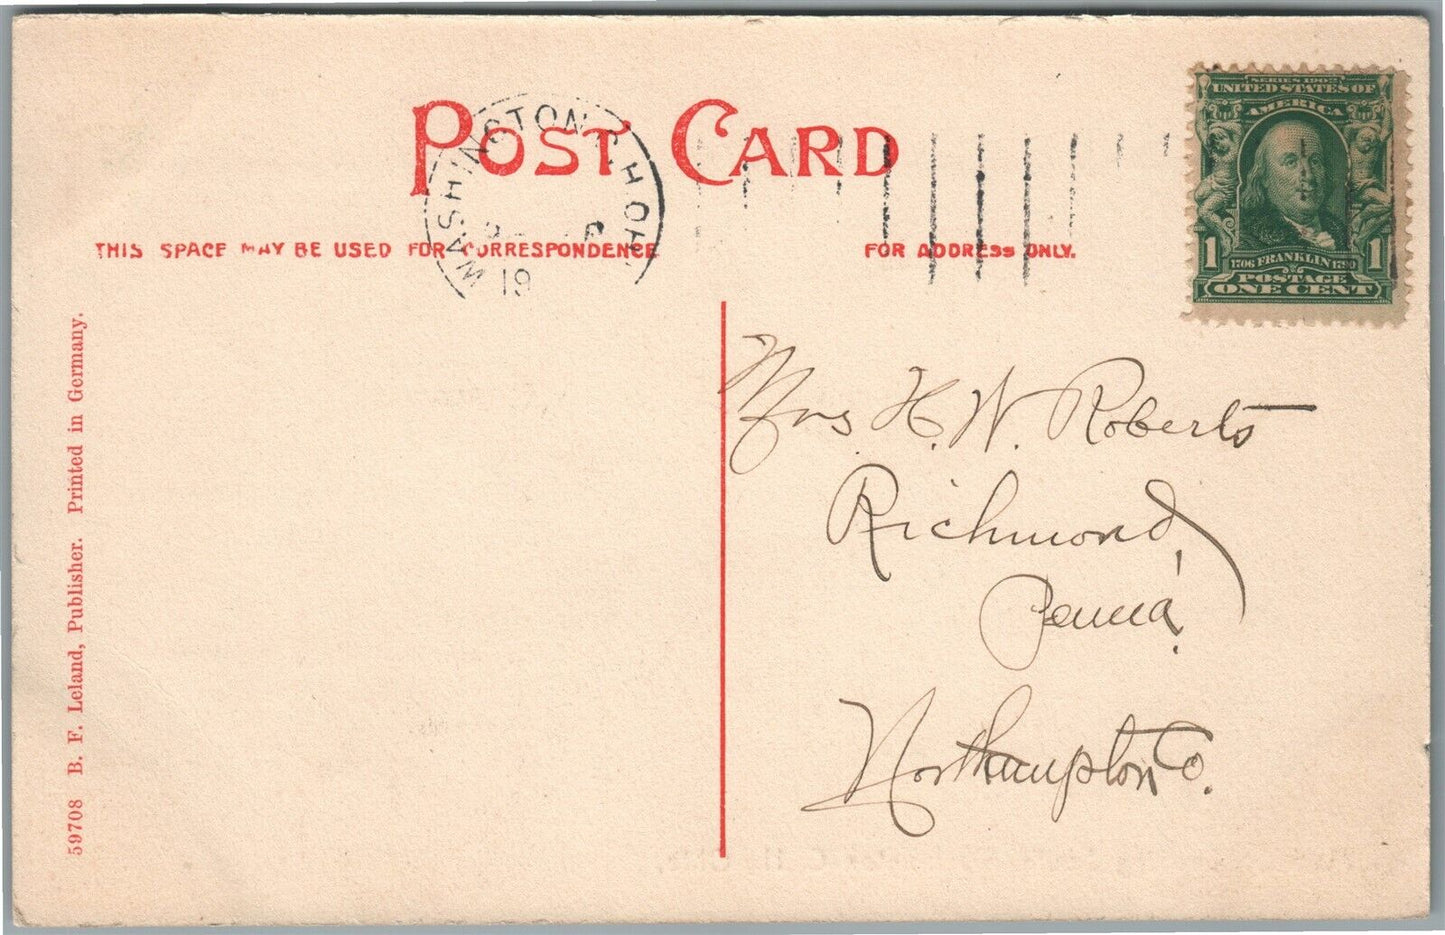 POST CARD
WASHINGTON C. H. OHIO
19
THIS SPACE MAY BE USED FOR CORRESPONDENCE
FOR ADDRESS ONLY.
SERIES 1902
UNITED STATES OF
AMERICA
1 1706 FRANKLIN 1790 1
POSTAGE
ONE CENT
59708 B. F. Leland, Publisher. Printed in Germany.
Mrs H. W. Roberts
Richmond,
Penna.
Northampton Co.